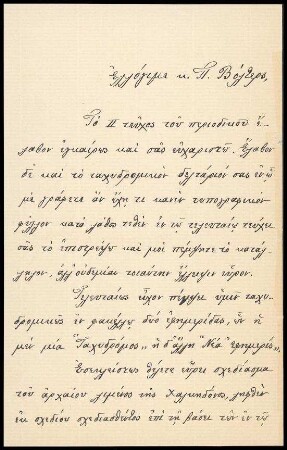 Ἐλλόγιμε κ. Π. Βόλτερς,
Τὸ II τεῦχος τοῦ περιοδικοῦ ἔ-
λαβον ἐγκαίρως καὶ σᾶς εὐχαριστῶ. Ἔλαβον
δὲ καὶ τὸ ταχυδρομικὸν δελτάριόν σας ἐν ᾧ
μὲ γράφετε ἂν ἔχῃ τι κανὲν τυπογραφικὸν
φύλλον κατὰ λάθος τεθὲν ἐν τῷ τελευταίῳ τεύχει
σᾶς τὸ ἐπιστρέψω καὶ μοὶ πέμψητε τὸ κατάλ-
ληλον, ἀλλ' οὐδεμίαν τοιαύτην ἔλλειψιν εὗρον.
Τελευταίως εἶχον πέμψει ὑμῖν ταχυ-
δρομικῶς ἐν φακέλλῳ δύο ἐφημερίδας, ὧν ἡ
μὲν μία "Ταχυδρόμος" ἡ δ' ἄλλη "Νέα Ἐφημερίς".
Ἐσωκλείστως θέλετε εὕρει σχεδίασμα
τοῦ ἀρχαίου λιμένος τῆς Χαλκηδόνος, ληφθὲν
ἐκ σχεδίου σχεδιασθέντος ἐπὶ τῇ βάσει τῶν ἐν τῷ